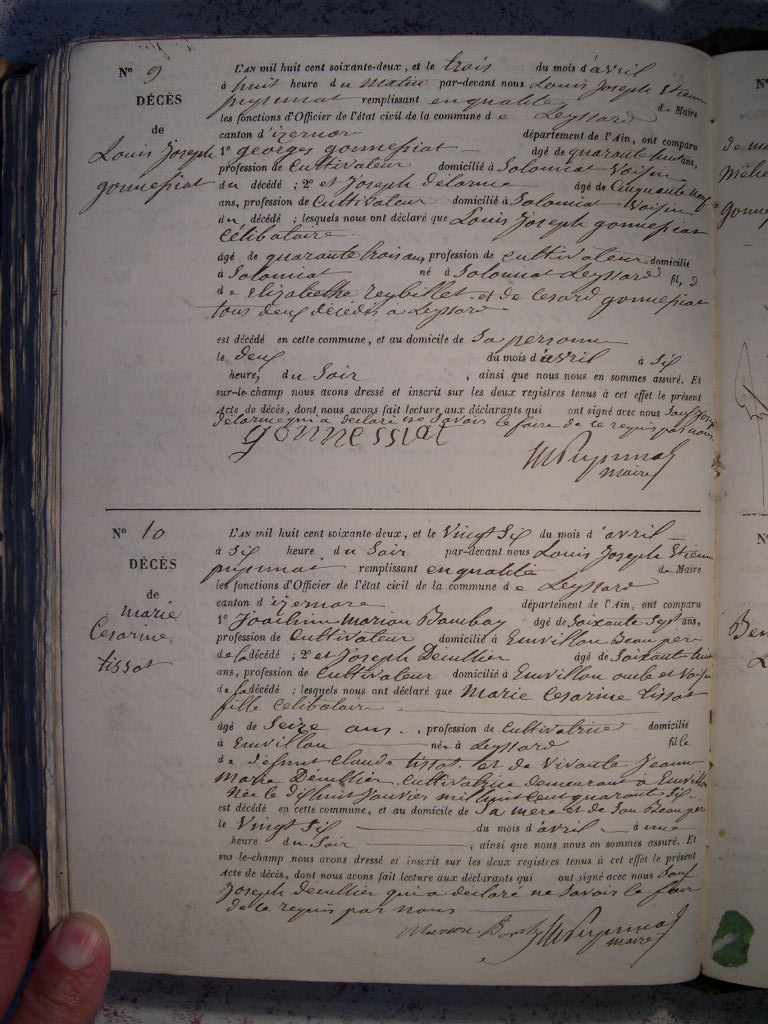 N° 9
DÉCÈS
de
Louis Joseph
gonnessiat
L'AN mil huit cent soixante-deux, et le trois du mois d'avril
à huit heure du matin par-devant nous Louis Joseph Etienne
puysmat remplissant en qualité de Maire
les fonctions d'Officier de l'état civil de la commune de Leyssard
canton d'izernore département de l'Ain, ont comparu
1° georges gonnessiat âgé de quarante huit ans,
profession de Cultivateur domicilié à Solomiat Voisin
du décédé ; 2° et Joseph Délorme âgé de Cinquante neuf
ans, profession de Cultivateur domicilié à Solomiat Voisin
du décédé ; lesquels nous ont déclaré que Louis Joseph gonnessiat
Célibataire
âgé de quarante trois ans, profession de cultivateur domicilié
à Solomiat né à Solomiat Leyssard fil, d
de Elizabethe reybillet et de Cesard gonnessiat
tous deux décédés à Leyssard
est décédé en cette commune, et au domicile de Sa personne
le deux du mois d'avril à Six
heure, du Soir , ainsi que nous nous en sommes assuré. Et
sur-le-champ nous avons dressé et inscrit sur les deux registres tenus à cet effet le présent
Acte de décès, dont nous avons fait lecture aux déclarants qui ont signé avec nous Sauf Joseph
delorme qui a déclaré ne Savoir le faire de ce requis par nous
gonnessiat
Puysmat
maire
N° 10
DÉCÈS
de
marie
Cesarine
tissot
L'AN mil huit cent soixante-deux, et le Vingt Six du mois d'avril
à Six heure du Soir par-devant nous Louis Joseph Etienne
puysmat remplissant en qualité de Maire
les fonctions d'Officier de l'état civil de la commune de Leyssard
canton d'izernore département de l'Ain, ont comparu
1° Joachim Marion Bomboy âgé de Soixante Sept ans,
profession de Cultivateur domicilié à Emvillou Beau pere
de la décédé ; 2° et Joseph Décullier âgé de Soixante trois
ans, profession de Cultivateur domicilié à Emvillou oncle et Voisin
de la décédé ; lesquels nous ont déclaré que Marie Cesarine tissot
fille Celibataire
âgé de Seize ans. , profession de Cultivatrice domicilié
à Emvillou née à Leyssard fille
de défunt Claude tissot et de Vivante Jeanne
Marie Décullier Cultivatrice demeurant à Emvillou
Née le dix huit Janvier mil huit Cent quarante Six
est décédé en cette commune, et au domicile de Sa mère et de Son Beau pere
le Vingt Six du mois d'avril à une
heure du Soir , ainsi que nous nous en sommes assuré. Et
sur-le-champ nous avons dressé et inscrit sur les deux registres tenus à cet effet le présent
Acte de décès, dont nous avons fait lecture aux déclarants qui ont signé avec nous Sauf
Joseph decullier qui a déclaré ne Savoir le faire
de ce requis par nous
Marion Puysmat
maire
N°
N°